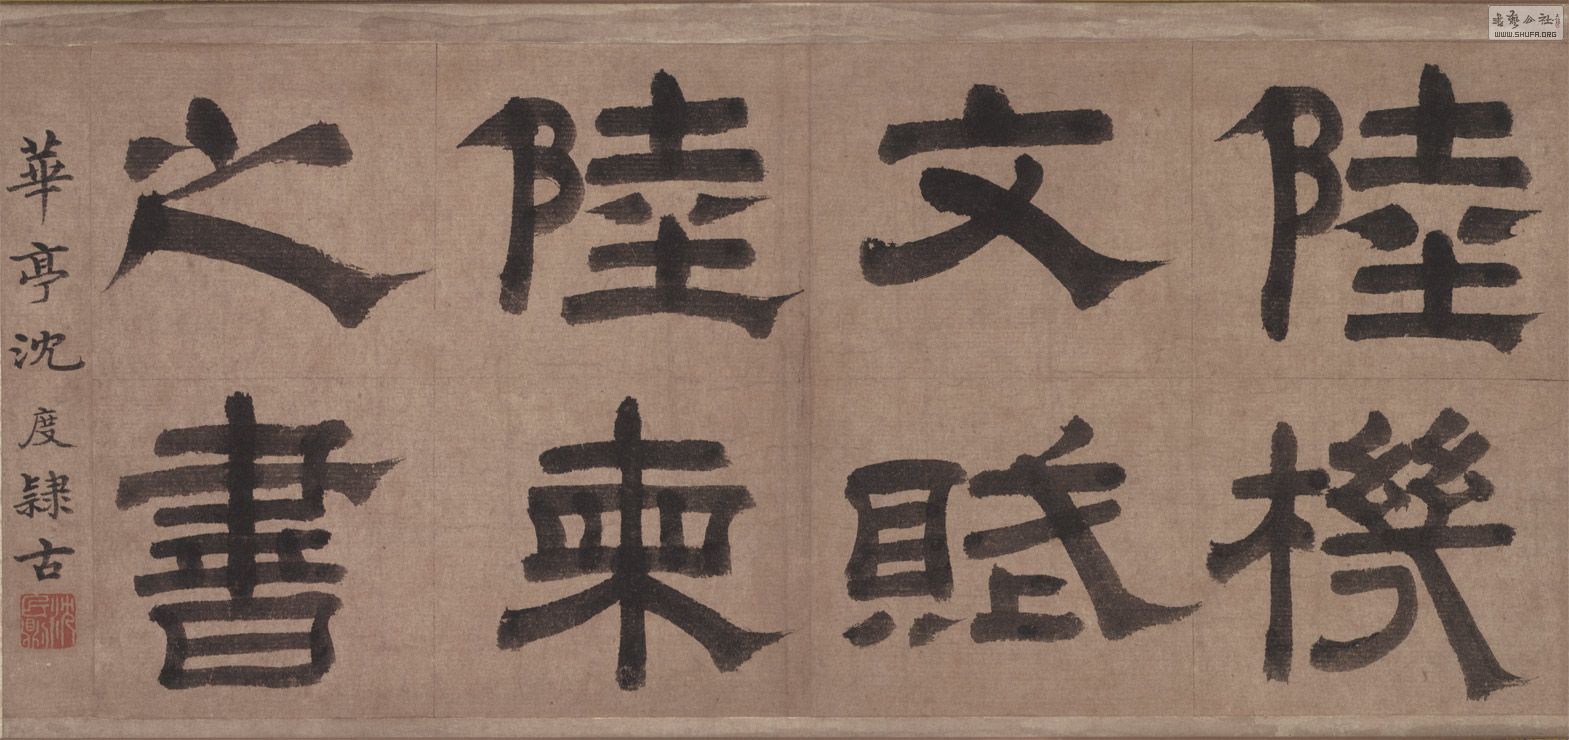 陸機
文賦
陸柬
之書
華亭沈度隸古
沈民則
書藝公社
WWW.SHUFA.ORG